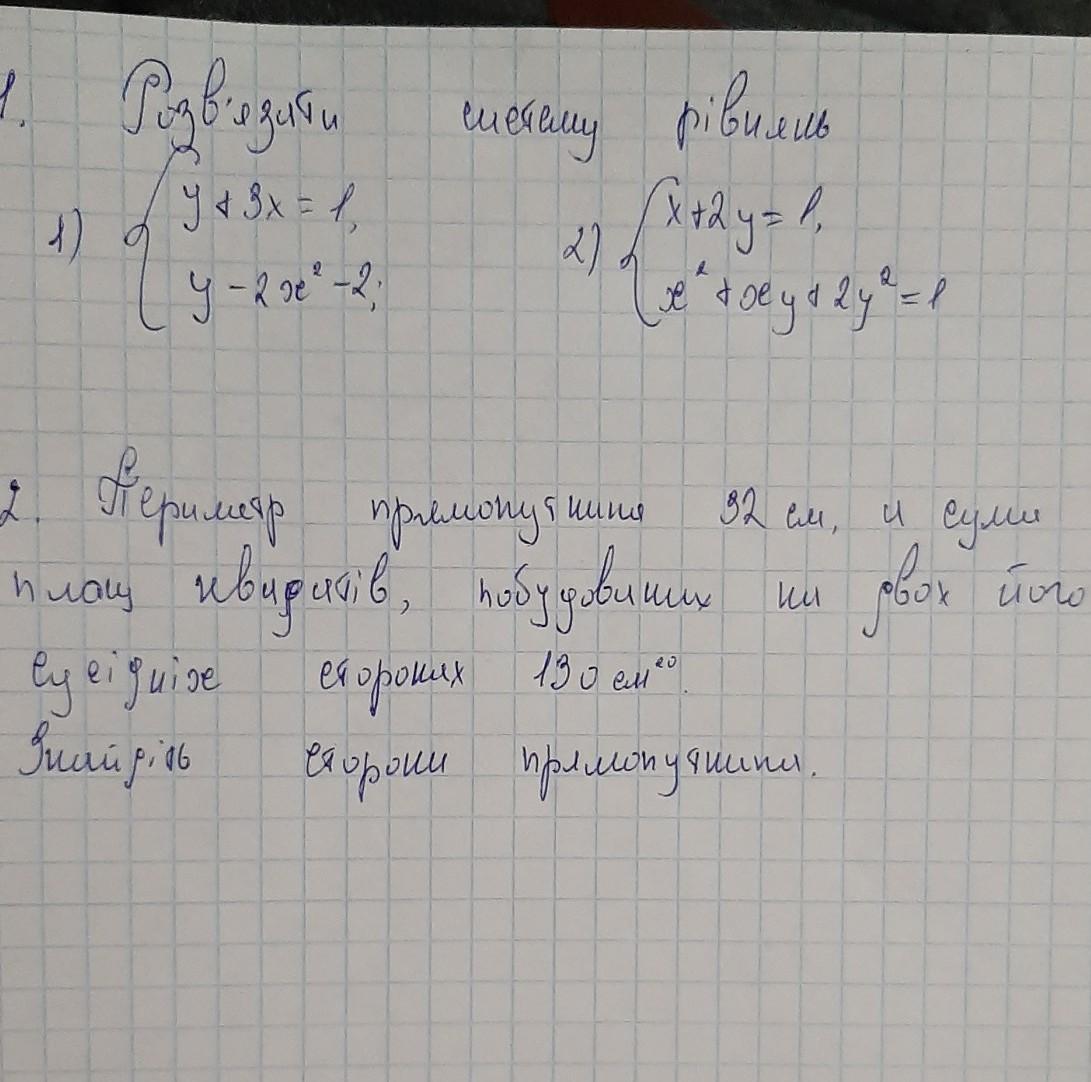 1. Розв'язати систему рівнянь
1) { y + 3x = 1, 2) { x + 2y = 1,
y - 2x² - 2; x² + xy + 2y² = 1
2. Периметр прямокутника 32 см, а сума
площ квадратів, побудованих на двох його
сусідніх сторонах 130 см²⁰.
Знайдіть сторони прямокутника.